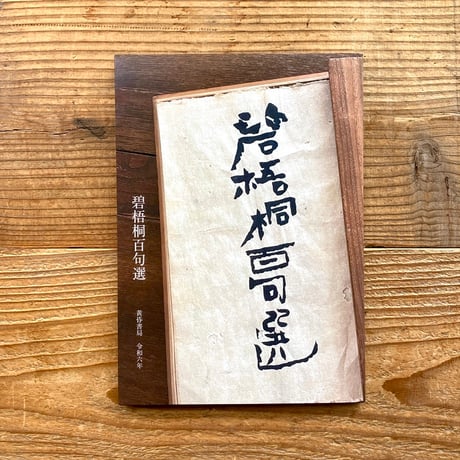 碧梧桐百句選
碧梧桐百句選
黄昏書局 令和六年